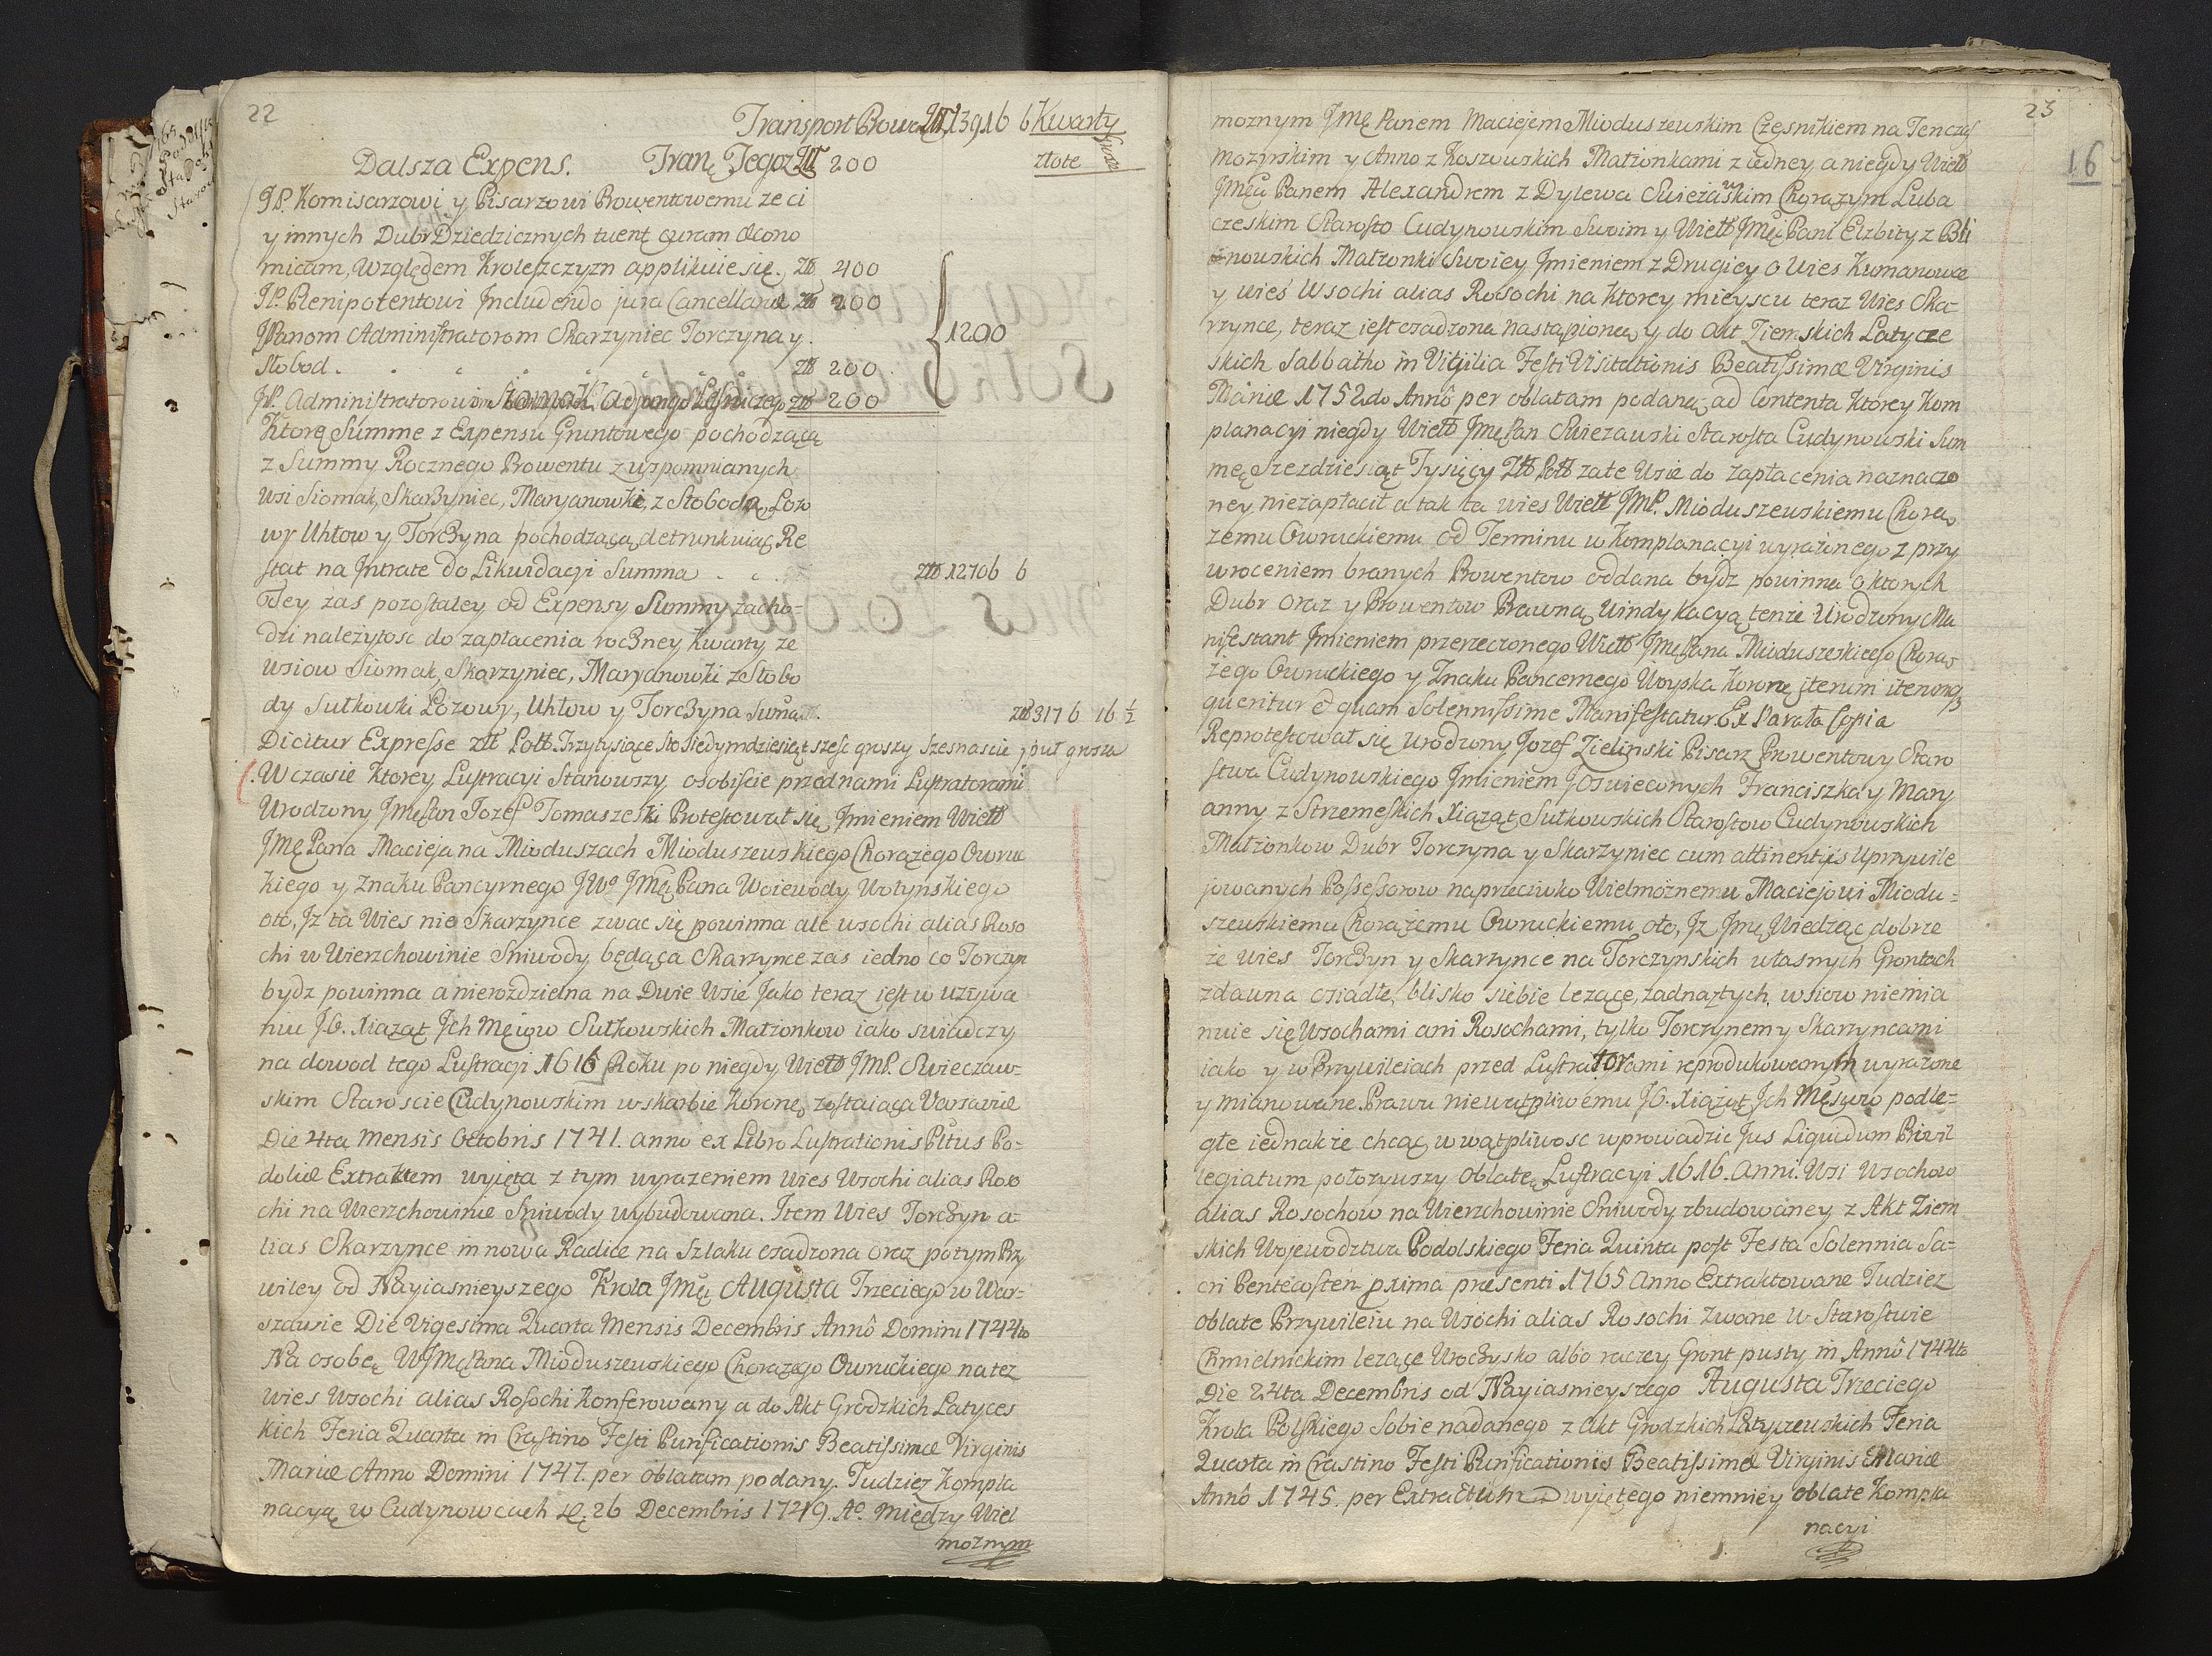 22
Transport Prowe Złł 13916 6 Kwarty
złote
Dalsza Expens. Tran. Tegoz Złł 200
JP. Komisarzowi y Pisarzowi Prowentowemu ze ci
y innych Dubr Dziedzicznych tuent curam œcono
micam, Względem Kroleszczyzn applikuie się. Złł 400
JP. Plenipotentowi Includendo jura Cancellariæ Złł 200
JPanom Administratorom Skarzyniec Torczyna y
Słobod. Złł 200
1200
JP. Administratorowi Siomak Leśniczego Złł 200
Ktorą Summe z Expensu Gruntowego pochodzącą
z Summy Rocznego Prowentu z wspomnianych
wsi Siomak, Skarzyniec, Maryanowki, z Słobodą, Łozo
wy Uhłow y Torczyna pochodzącą, detrunkuiąc Re
stat na Intrate do Likwidacyi Summa . . . Złł 12706 6
Tey zas pozostałey od Expensy Summy zacho-
dzi nalezytosc do zapłacenia roczney Kwarty ze
wsiow Siomak, Skarzyniec, Maryanowki z Słobo
dy Sułkowki Łozowy, Uhłow y Torczyna Suma. Złł 3176 16 ½
Dicitur Expresse złł Poll. Trzytysiące Sto Siedymdziesiąt szesc groszy szesnascie y puł grosza
Wczasie ktorey Lustracyi Stanowszy osobiscie przednami Lustratorami
Urodzony JmcPan Jozef Tomaszeski Protestował się Jmieniem Wielł
JMę Pana Macieja na Mioduszach Mioduszewskiego Chorązego Owruc
kiego y Znaku Pancyrnego JWo JMę Pana Woiewody Wołynskiego
oto, Jz ta Wies nie Skarzynce zwac się powinna ale wsochi alias Roso
chi w Wierzchowinie Sniwody będąca Skarzynce zas iedno co Torczyn
bydz powinna a nierozdzielna na Dwie Wsie Jako teraz iest w uzywa
niu JO. Xiąząt Jch Męiow Sułkowskich Małzonkow iako swiadczy
na dowod tego Lustracyi 1616 Roku po niegdy Wielł JMP. Swieczaw-
skim Staroscie Cudynowskim w skarbie Korone, zostaiąca Varsaviæ
Die 4ta Mensis Octobris 1741. anno ex Libro Lustrationis Pltus Po-
doliæ Extraktem wyięta z tym wyrazeniem Wies Wsochi alias Roso
chi na Wierzchowinie Sniwody wybudowana. Item Wies Torczyn a-
lias Skarzynce in nowa Radice na Szlaku osadzona oraz potym Przy
wiley od Nayiasnieyszego Krola Jmę Augusta Trzeciego w War-
szawie Die Vigesima Quarta Mensis Decembris Annô Domini 1744to
Na osobę WJMęPana Mioduszewskiego Chorązego Owruckiego na tez
wies Wsochi alias Rosochi Konferowany a do Akt Grodzkich Latyces
kich Feria Quarta in Crastino Festi Purificationis Beatissimæ Virginis
Mariæ Anno Domini 1747. per oblatam podany. Tudziez Kompla
nacyą w Cudynowcach D. 26 Decembris 1749. Ao. Między Wiel
moznym
23
16
moznym Jmę Panem Maciejem Mioduszewskim Częsnikiem na Tenczas
Mozyrskim y Anno z Koszowskich Małzonkami z iedney a niegdy Wielł
Jmcią Panem Alexandrem z Dylewa Swieżawskim Chorązym Luba
czeskim Starosto Cudynowskim Swoim y Wielł Jmci Pani Elzbity z Bli
znowskich Małzonki Swoiey Jmieniem z Drugiey o Wies Kumanowce
y wieś Wsochi alias Rosochi na ktorey mieyscu teraz Wies Ska-
rzynce, teraz iest osadzona nastąpioną, y do Akt Ziemskich Latycze
skich Sabbatho in Vigilia Festi Visitationis Beatissimæ Virginis
Mariæ 1752do Annô per oblatam podaną, ad Contenta ktorey Kom
planacyi niegdy Wielł JmęPan Swiezawski Starosta Cudynowski Sum
mę Szezdziesiąt Tysięcy Złł Poll zate Wsie do zapłacenia naznaczo
ney niezapłacił a tak ta wies Wielł JMP. Mioduszewskiemu Chorą
zemu Owruckiemu od Terminu w Komplanacyi wyrażonego z przy
wroceniem branych Prowentow oddana bydz powinna o ktorych
Dubr oraz y Prowentow Prawną Windykacyą tenze Urodzony Ma
nifestant Jmieniem przerzeczonego Wielł JmęPana Mioduszeskiego Chorą
żego Owruckiego y Znaku Pancernego Woyska Korone, iterum iterumq
queritur et quam Solennissime Manifestatur Ex Parata Copia
Reprotestował się Urodzony Jozef Zielinski Pisarz Prowentowy Staro
stwa Cudynowskiego Jmieniem JOswieconych Franciszka y Mary
anny z Strzemeskich Xiąząt Sułkowskich Starostow Cudynowskich
Małzonkow Dubr Torczyna y Skarzyniec cum attinentiis Uprzywile
jowanych Possessorow naprzeciwko Wielmożnemu Maciejowi Miodu-
szewskiemu Chorążemu Owruckiemu, oto, Jz Jmę Wiedząc dobrze
że wies Torczyn y Skarzynce na Torczynskich własnych Grontach
zdawna osiadłe, blisko siebie lezące, zadna z tych wsiow niemia
nuie się Wsochami ani Rosochami, tylko Torczynem y Skarzyncami
iako y w Przywileiach przed Lustratorami reprodukowanym wyrazone
y mianowane. Prawu niewątpliwemu JO. Xiąząt Jch Męsciow podle-
głe iednakże chcąc w wątpliwosc wprowadzic Jus Liquidum Privil
legiatum połozywszy Oblatę Lustracyi 1616. Anni. Wsi Wsochow
alias Rosochow na Wierzchowinie Sniwody zbudowaney z Akt Ziem
skich Wojewodztwa Podolskiego Feria Quinta post Festa Solennia Sa-
cri Pentecosten pxima presenti 1765 Anno Extraktowane Tudziez
oblate Przywileiu na Wsochi alias Rosochi zwane w Starostwie
Chmielnickim lezące Uroczysko albo raczey Gront pusty in Annô 1744to
Die 24ta Decembris od Nayiasnieyszego Augusta Trzeciego
Krola Polskiego Sobie nadanego z Akt Grodzkich Latyczewskich Feria
Quarta in Crastino Festi Purificationis Beatissimæ Virginis Mariæ
Annô 1745. per Extractum wyjętego niemniey oblate Kompla
nacyi